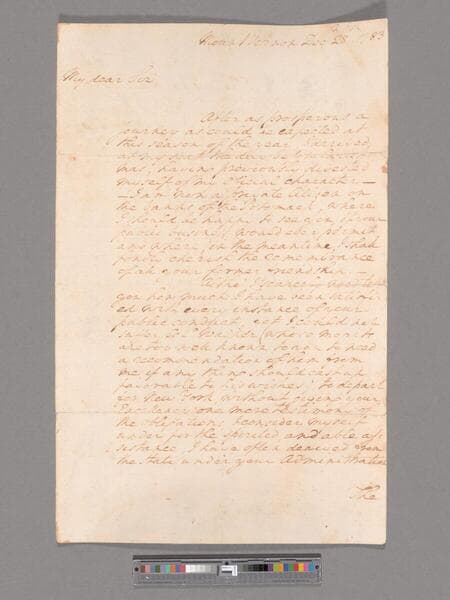 Mount Vernon Dec 28th 1783
My dear Sir,
After as prosperous a
journey as could be expected at
this season of the year I arrived
at my seat the day before
having previously divested
myself of my Official character—
I am now a private Citizen on
the banks of the Potomack, where
I should be happy to see you if your
public business would ever permit
and where in the meantime I shall
fondly cherish the remembrance
of all your former friendship.—
Altho' I scarcely need tell
you how much I have been satisfied
with every instance of your
public conduct, yet I could not
suffer (whose merits
are too well known to you to need
a recommendation of him from
me if any thing should cast up
favorable to his wishes) to depart
for New York, without giving your
Excellency one more testimony of
the obligations I consider myself
under for the spirited and able as-
sistance, I have often derived from
the State under your Administration
The